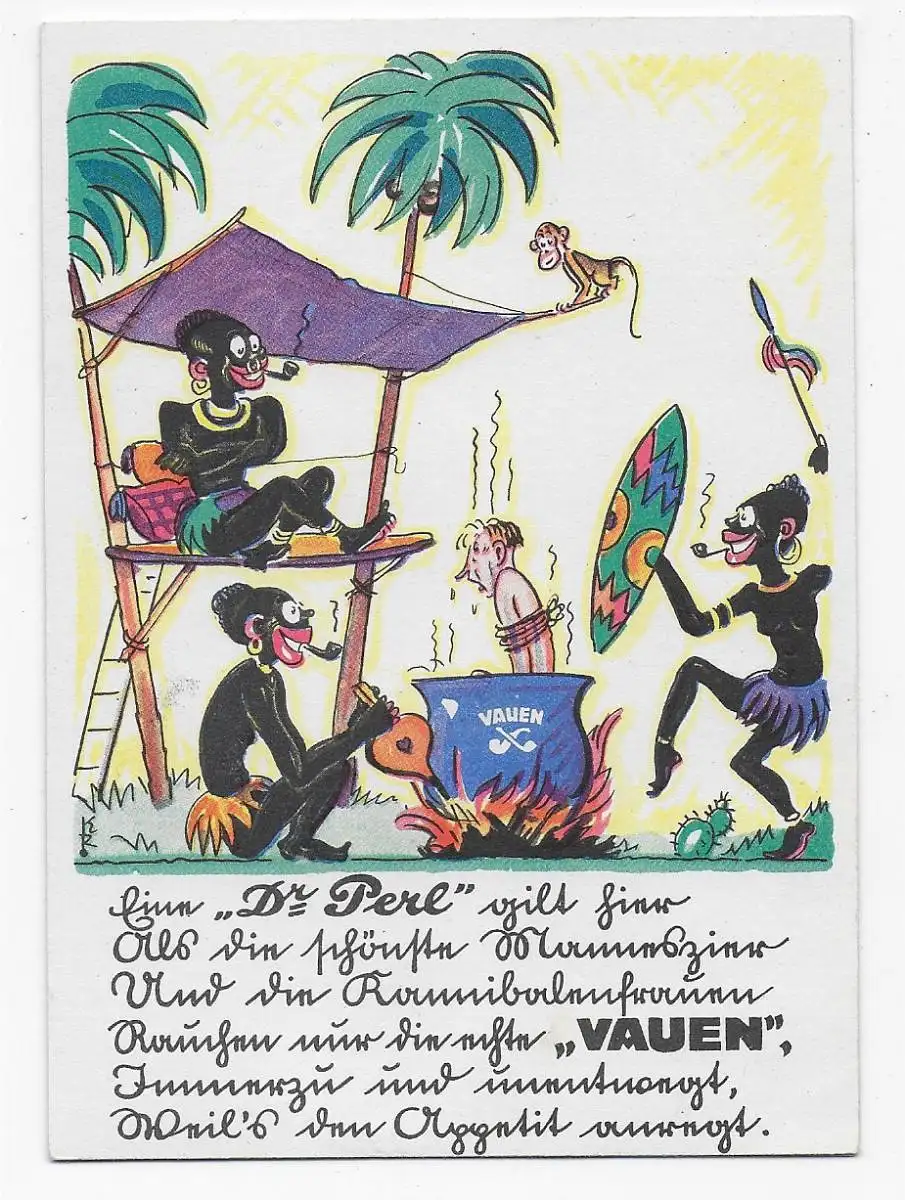 VAUEN
KR
Eine „Dr Perl“ gilt hier
Als die schönste Manneszier
Und die Kannibalenfrauen
Rauchen nur die echte „VAUEN“,
Immerzu und unentwegt,
Weil's den Appetit anregt.